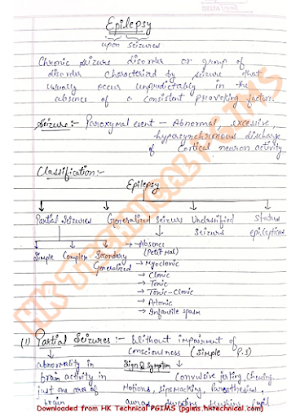 Epilepsy
upon seizures
Chronic seizure disorder or group of
disorder characterized by seizure that
usually occur unpredictably in the
absence of a consistent provoking factors.
Seizure:- Paroxysmal event - Abnormal excessive
hypersynchronous discharge
of cortical neuron activity.
Classification:-
Epilepsy
Partial Seizures Generalized Seizures Unclassified Status
Seizures epilepticus
Simple Complex Secondary
Generalized
→ Absence
(Petit Mal)
→ Myoclonic
→ Clonic
→ Tonic
→ Tonic-Clonic
→ Atonic
→ Infantile spasm
(1) Partial Seizures:- Without impairment of
consciousness (Simple P.S)
abnormality in Sign & Symptom
brain activity in Convulsive jerking, chewing,
just one area of Motions, lipsmacking, Paresthesias,
brain auras, sweating, flushing, pupil
HK Technical PGIMS
Downloaded from HK Technical PGIMS (pgims.hktechnical.com)